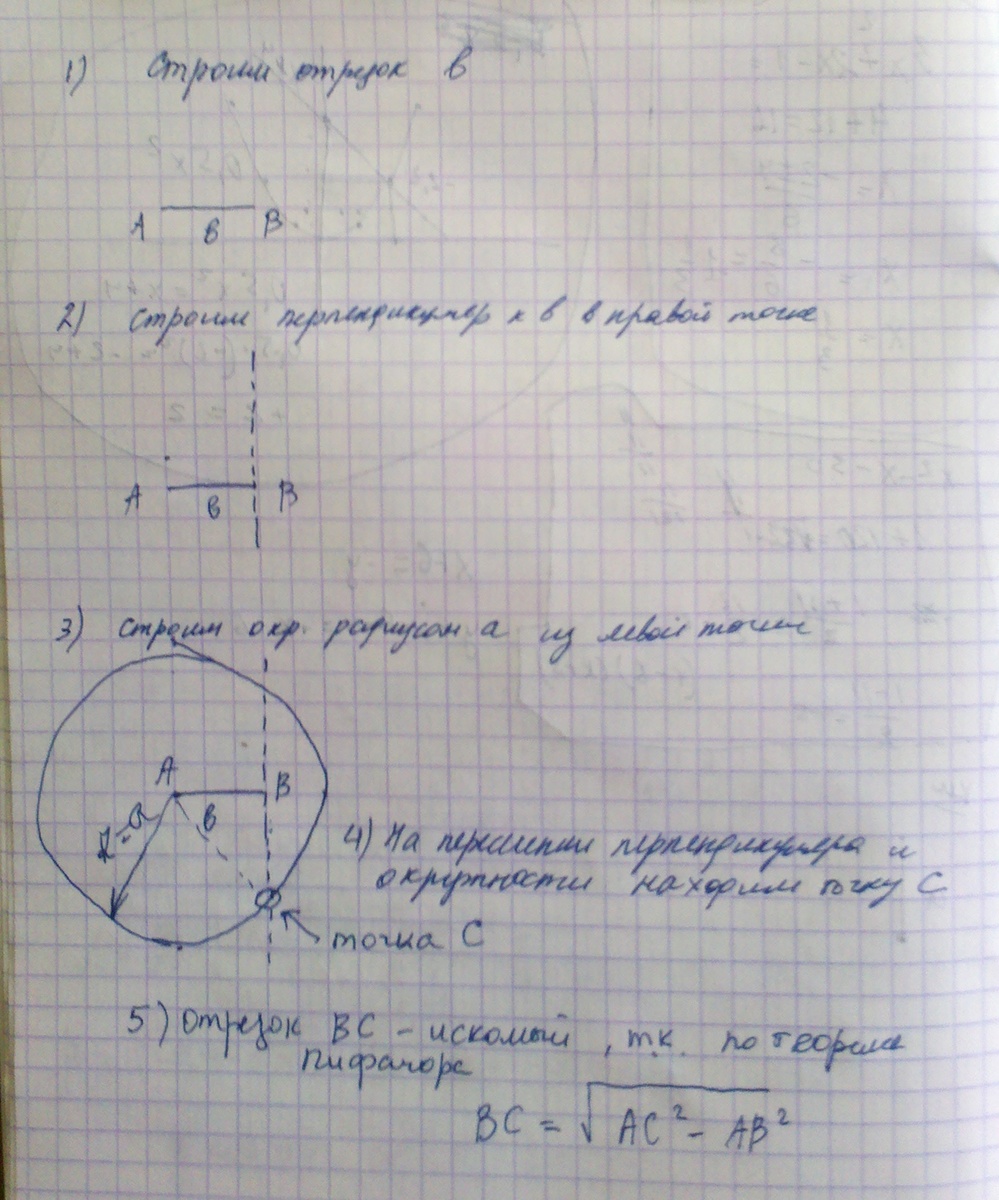 1) Строим отрезок в
А в В
2) Строим перпендикуляр к в в правой точке
А в В
3) Строим окр. радиусом а из левой точки
А В
R=a в
4) На пересечении перпендикуляра и
окружности находим точку С
точка С
5) Отрезок ВС - искомый, т.к. по теореме
Пифагора
ВС = √АС² - АВ²